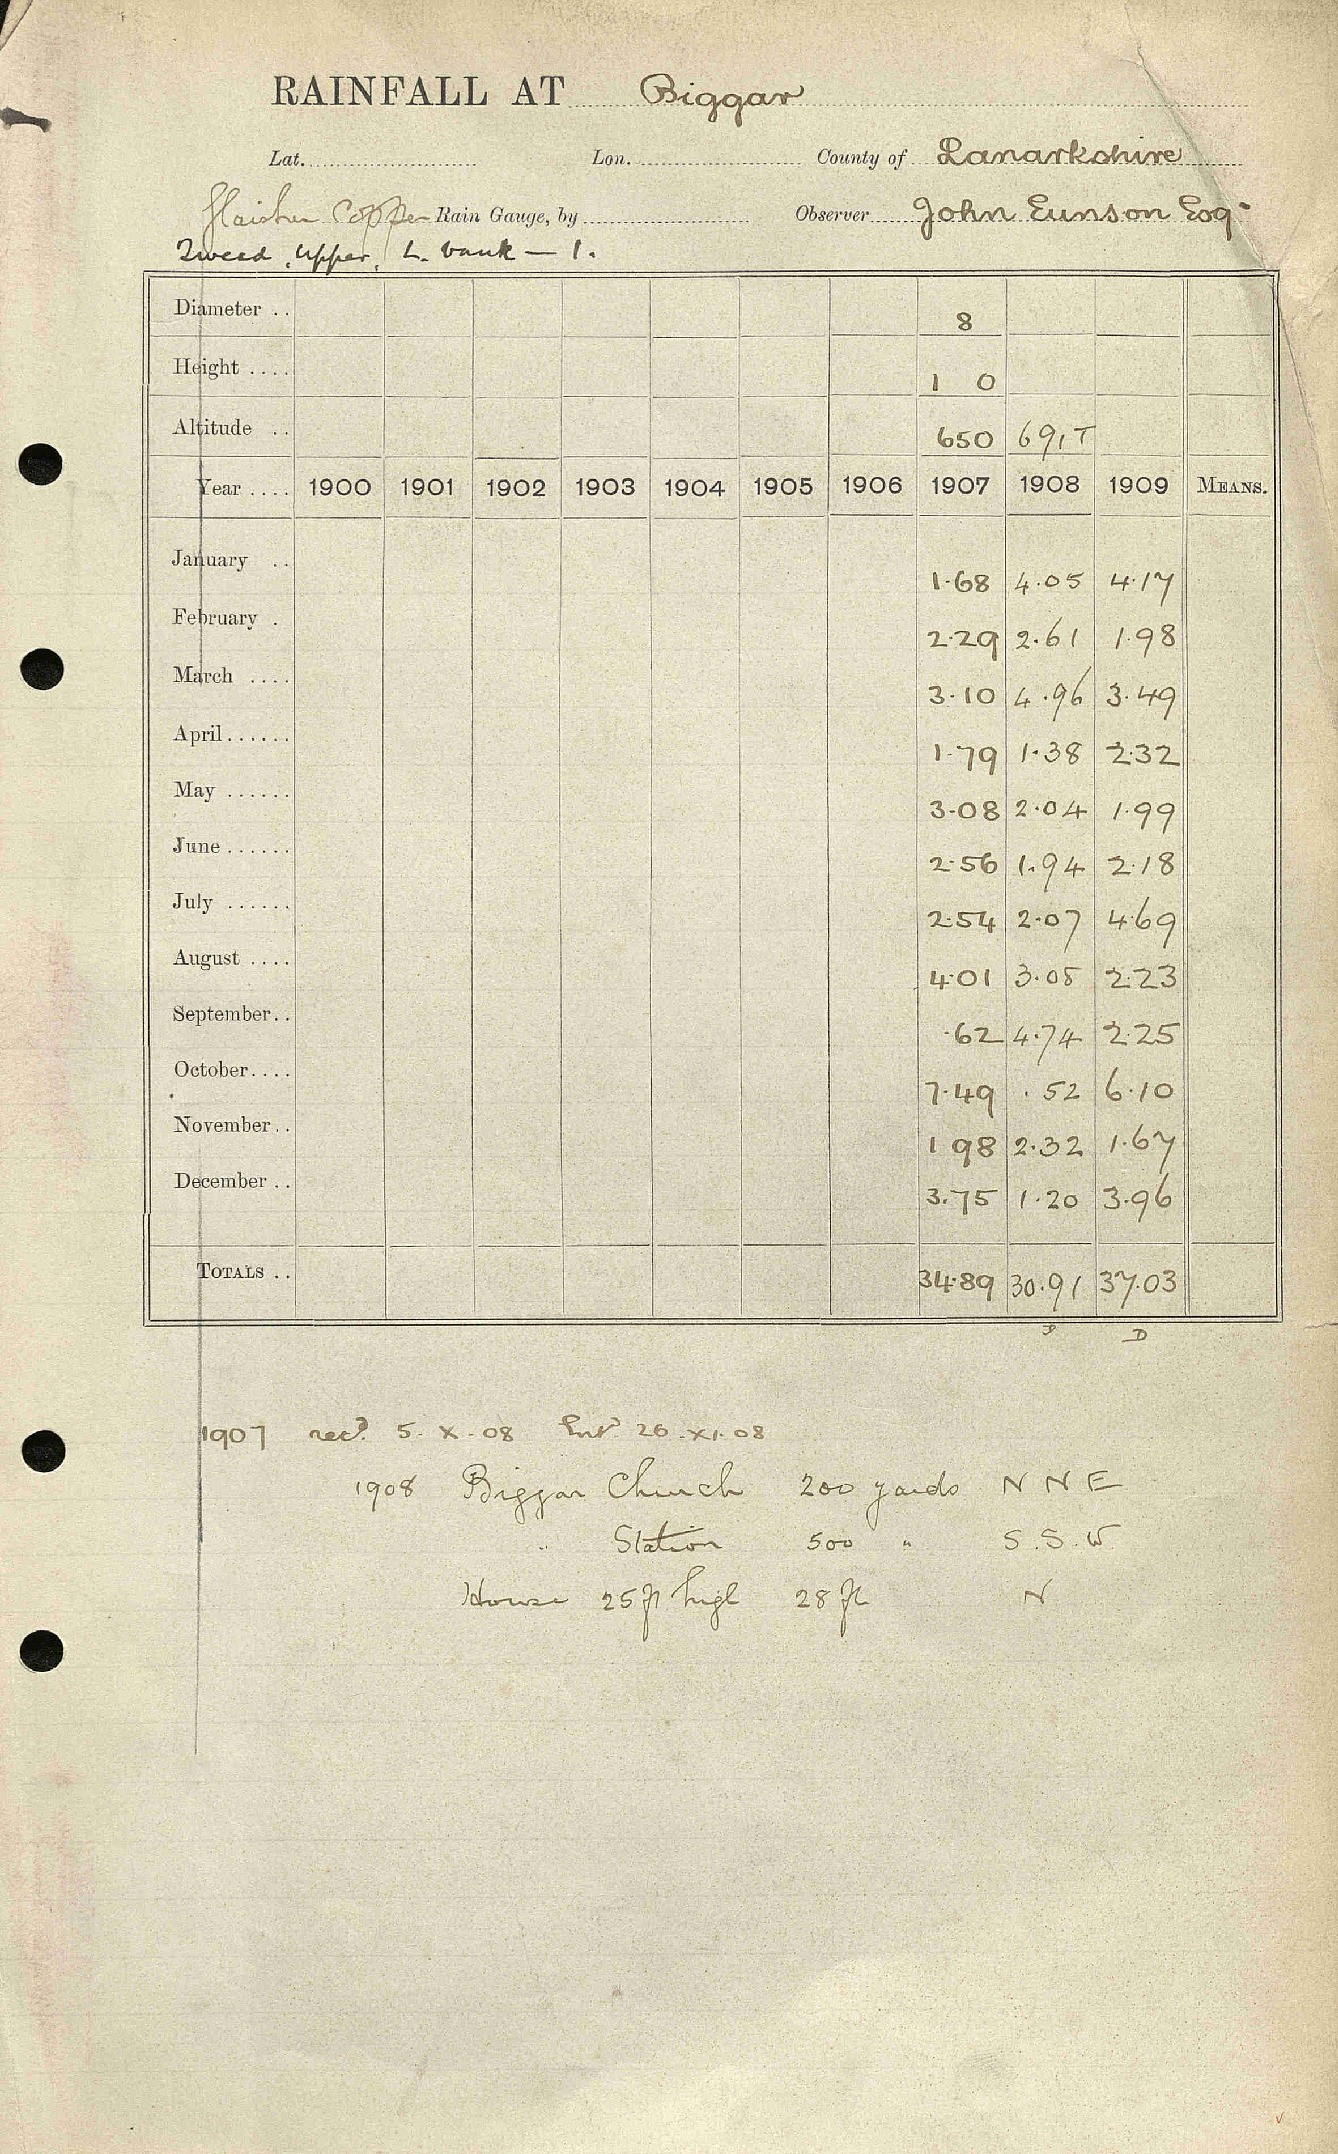 RAINFALL AT Biggar
Lat. Lon. County of Lanarkshire
Glaisher Copper Rain Gauge, by Observer John Eunson Esq.
Tweed, Upper, L. bank — 1.
Diameter .. 8
Height .... 1 0
Altitude .. 650 691 T
Year .... 1900 1901 1902 1903 1904 1905 1906 1907 1908 1909 MEANS.
January .. 1.68 4.05 4.17
February . 2.29 2.61 1.98
March .... 3.10 4.96 3.49
April ...... 1.79 1.38 2.32
May ...... 3.08 2.04 1.99
June ...... 2.56 1.94 2.18
July ...... 2.54 2.07 4.69
August .... 4.01 3.08 2.23
September.. .62 4.74 2.25
October.... 7.49 .52 6.10
November.. 1 98 2.32 1.67
December .. 3.75 1.20 3.96
TOTALS .. 34.89 30.91 37.03
D
1907 recd. 5. X. 08 Entd 26. XI. 08
1908 Biggar Church 200 yards N N E
" Station 500 " S. S. W
House 25 ft high 28 ft N